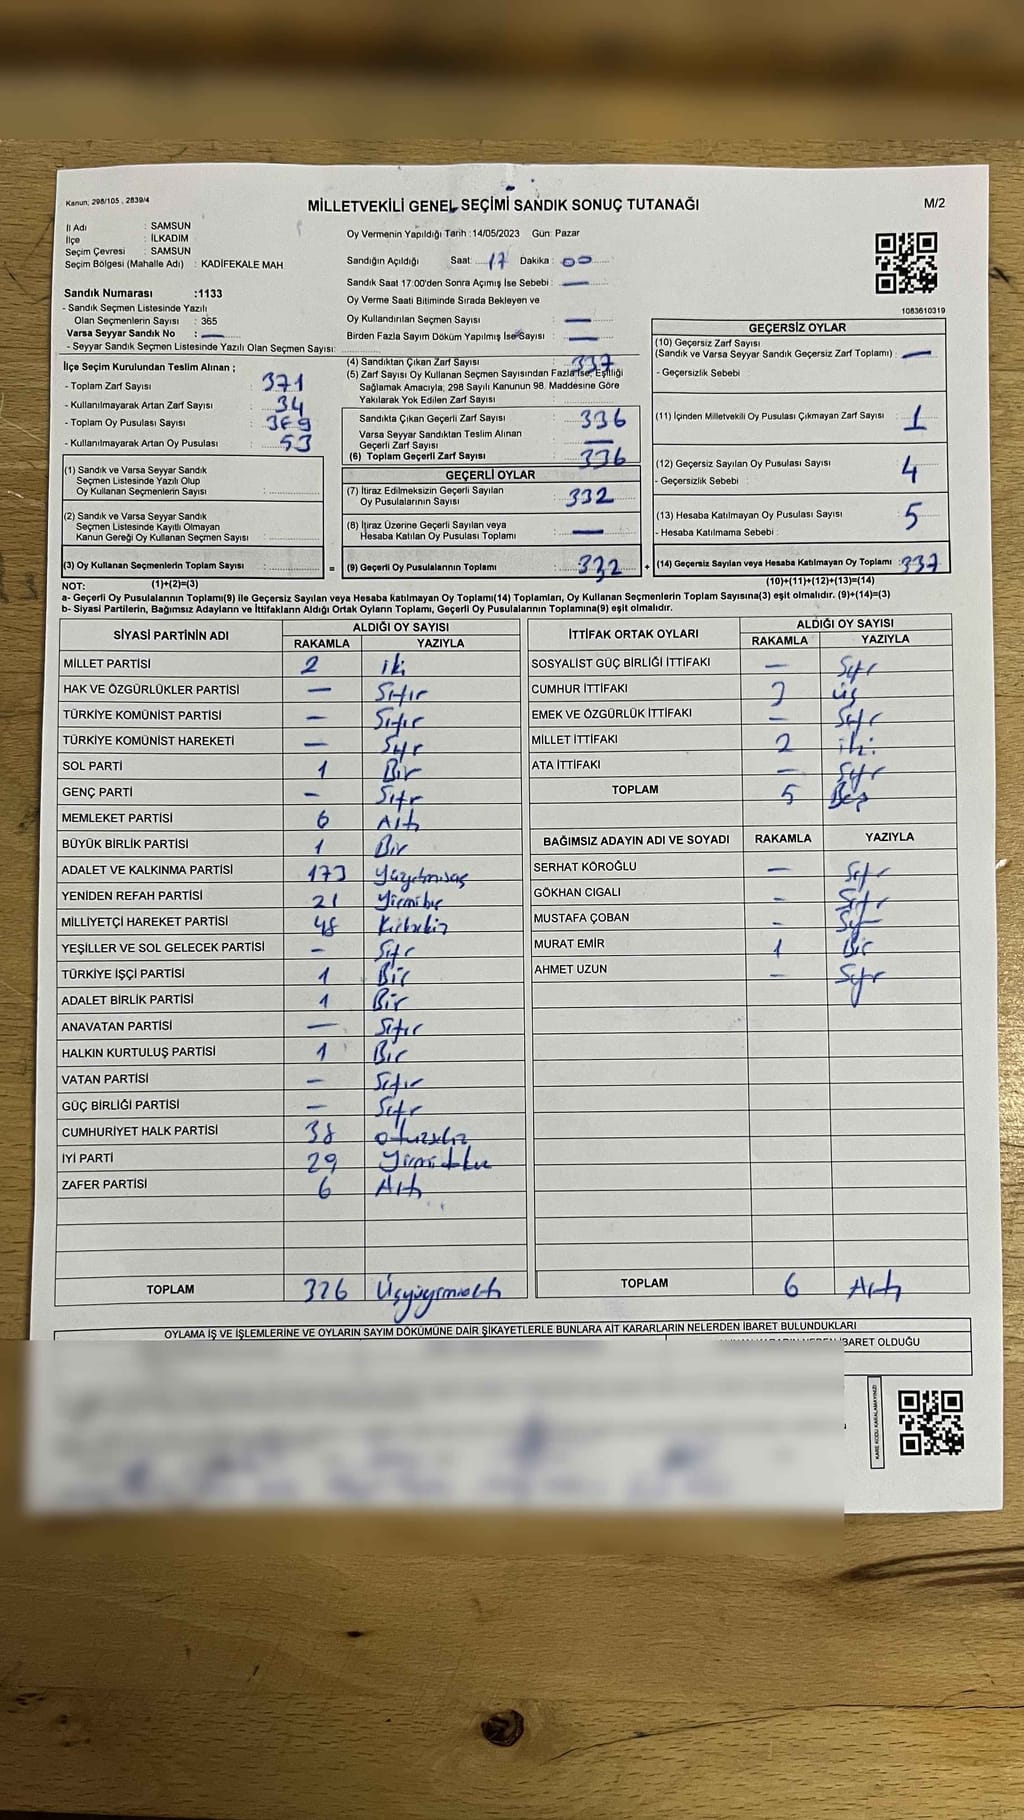 Kanun; 298/105 , 2839/4
MİLLETVEKİLİ GENEL SEÇİMİ SANDIK SONUÇ TUTANAĞI
M/2
İl Adı : SAMSUN
İlçe : İLKADIM
Seçim Çevresi : SAMSUN
Seçim Bölgesi (Mahalle Adı) : KADİFEKALE MAH
Sandık Numarası :1133
- Sandık Seçmen Listesinde Yazılı
Olan Seçmenlerin Sayısı : 365
Varsa Seyyar Sandık No : —
- Seyyar Sandık Seçmen Listesinde Yazılı Olan Seçmen Sayısı:
Oy Vermenin Yapıldığı Tarih :14/05/2023 Gün: Pazar
Sandığın Açıldığı Saat: 17 Dakika: 00
Sandık Saat 17:00'den Sonra Açımış İse Sebebi : —
Oy Verme Saati Bitiminde Sırada Bekleyen ve
Oy Kullandırılan Seçmen Sayısı —
Birden Fazla Sayım Döküm Yapılmış İse Sayısı : —
1083610319
İlçe Seçim Kurulundan Teslim Alınan ;
- Toplam Zarf Sayısı : 371
- Kullanılmayarak Artan Zarf Sayısı : 34
- Toplam Oy Pusulası Sayısı : 369
- Kullanılmayarak Artan Oy Pusulası : 53
(1) Sandık ve Varsa Seyyar Sandık
Seçmen Listesinde Yazılı Olup
Oy Kullanan Seçmenlerin Sayısı :
(2) Sandık ve Varsa Seyyar Sandık
Seçmen Listesinde Kayıtlı Olmayan
Kanun Gereği Oy Kullanan Seçmen Sayısı :
(3) Oy Kullanan Seçmenlerin Toplam Sayısı :
(4) Sandıktan Çıkan Zarf Sayısı : 337
(5) Zarf Sayısı Oy Kullanan Seçmen Sayısından Fazla İse, Eşitliği
Sağlamak Amacıyla; 298 Sayılı Kanunun 98. Maddesine Göre
Yakılarak Yok Edilen Zarf Sayısı
Sandıkta Çıkan Geçerli Zarf Sayısı : 336
Varsa Seyyar Sandıktan Teslim Alınan
Geçerli Zarf Sayısı : —
(6) Toplam Geçerli Zarf Sayısı : 336
GEÇERLİ OYLAR
(7) İtiraz Edilmeksizin Geçerli Sayılan
Oy Pusulalarının Sayısı : 332
(8) İtiraz Üzerine Geçerli Sayılan veya
Hesaba Katılan Oy Pusulası Toplamı : —
= (9) Geçerli Oy Pusulalarının Toplamı : 332 +
GEÇERSİZ OYLAR
(10) Geçersiz Zarf Sayısı
(Sandık ve Varsa Seyyar Sandık Geçersiz Zarf Toplamı) : —
- Geçersizlik Sebebi :
(11) İçinden Milletvekili Oy Pusulası Çıkmayan Zarf Sayısı : 1
(12) Geçersiz Sayılan Oy Pusulası Sayısı : 4
- Geçersizlik Sebebi :
(13) Hesaba Katılmayan Oy Pusulası Sayısı : 5
- Hesaba Katılmama Sebebi :
(14) Geçersiz Sayılan veya Hesaba Katılmayan Oy Toplamı : 337
NOT: (1)+(2)=(3)
(10)+(11)+(12)+(13)=(14)
a- Geçerli Oy Pusulalarının Toplamı(9) ile Geçersiz Sayılan veya Hesaba katılmayan Oy Toplamı(14) Toplamları, Oy Kullanan Seçmenlerin Toplam Sayısına(3) eşit olmalıdır. (9)+(14)=(3)
b- Siyasi Partilerin, Bağımsız Adayların ve İttifakların Aldığı Ortak Oyların Toplamı, Geçerli Oy Pusulalarının Toplamına(9) eşit olmalıdır.
SİYASİ PARTİNİN ADI
ALDIĞI OY SAYISI
RAKAMLA YAZIYLA
MİLLET PARTİSİ 2 iki
HAK VE ÖZGÜRLÜKLER PARTİSİ — Sıfır
TÜRKİYE KOMÜNİST PARTİSİ — Sıfır
TÜRKİYE KOMÜNİST HAREKETİ — Sıfır
SOL PARTİ 1 Bir
GENÇ PARTİ — Sıfır
MEMLEKET PARTİSİ 6 Altı
BÜYÜK BİRLİK PARTİSİ 1 Bir
ADALET VE KALKINMA PARTİSİ 173
YENİDEN REFAH PARTİSİ 21 Yirmibir
MİLLİYETÇİ HAREKET PARTİSİ 48 Kırksekiz
YEŞİLLER VE SOL GELECEK PARTİSİ — Sıfır
TÜRKİYE İŞÇİ PARTİSİ 1 Bir
ADALET BİRLİK PARTİSİ 1 Bir
ANAVATAN PARTİSİ — Sıfır
HALKIN KURTULUŞ PARTİSİ 1 Bir
VATAN PARTİSİ — Sıfır
GÜÇ BİRLİĞİ PARTİSİ — Sıfır
CUMHURİYET HALK PARTİSİ 38 otuzsekiz
İYİ PARTİ 29 Yirmidokuz
ZAFER PARTİSİ 6 Altı
TOPLAM 326 Üçyüzyirmialtı
İTTİFAK ORTAK OYLARI
ALDIĞI OY SAYISI
RAKAMLA YAZIYLA
SOSYALİST GÜÇ BİRLİĞİ İTTİFAKI — Sıfır
CUMHUR İTTİFAKI 3 üç
EMEK VE ÖZGÜRLÜK İTTİFAKI — Sıfır
MİLLET İTTİFAKI 2 iki
ATA İTTİFAKI — Sıfır
TOPLAM 5 Beş
BAĞIMSIZ ADAYIN ADI VE SOYADI RAKAMLA YAZIYLA
SERHAT KÖROĞLU — Sıfır
GÖKHAN CIGALI — Sıfır
MUSTAFA ÇOBAN — Sıfır
MURAT EMİR 1 Bir
AHMET UZUN — Sıfır
TOPLAM 6 Altı
OYLAMA İŞ VE İŞLEMLERİNE VE OYLARIN SAYIM DÖKÜMÜNE DAİR ŞİKAYETLERLE BUNLARA AİT KARARLARIN NELERDEN İBARET BULUNDUKLARI
İBARET OLDUĞU
KARE KODU KARALAMAYINIZ!